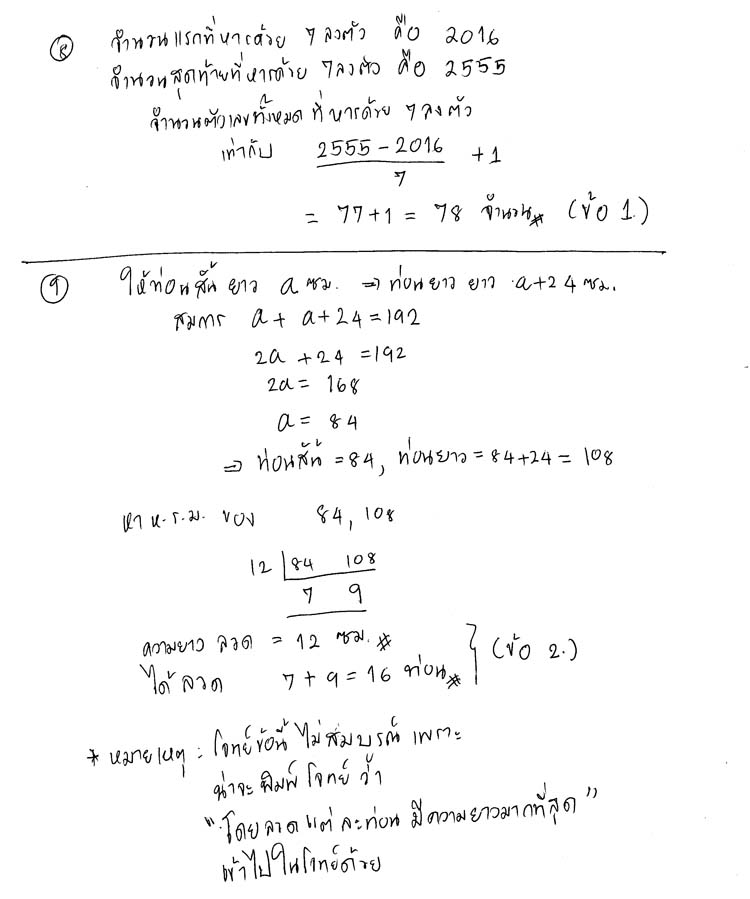 ๘ จำนวนแรกที่หารด้วย 7 ลงตัว คือ 2016
จำนวนสุดท้ายที่หารด้วย 7 ลงตัว คือ 2555
จำนวนตัวเลขทั้งหมด ที่หารด้วย 7 ลงตัว
เท่ากับ 2555 - 2016 + 1
7
= 77+1 = 78 จำนวน# (ข้อ 1.)
๑ ให้ท่อนสั้น ยาว a ซม. ⇒ ท่อนยาว ยาว a+24 ซม.
สมการ a + a+24 = 192
2a + 24 = 192
2a = 168
a = 84
⇒ ท่อนสั้น = 84, ท่อนยาว = 84+24 = 108
หา ห.ร.ม. ของ 84, 108
12 84 108
7 9
ความยาว ลวด = 12 ซม. #
ได้ ลวด 7 + 9 = 16 ท่อน#
(ข้อ 2.)
* หมายเหตุ : โจทย์ข้อนี้ ไม่สมบูรณ์ เพราะ
น่าจะ พิมพ์ โจทย์ ว่า
"โดย ลวด แต่ ละท่อน มีความยาวมากที่สุด"
เข้าไปในโจทย์ด้วย